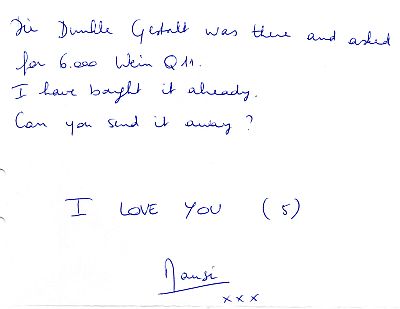 Die Dunkle Gestalt was there and asked
for 6.000 Wein Q11.
I have bought it already.
Can you send it away?
I LOVE YOU (5)
xxx